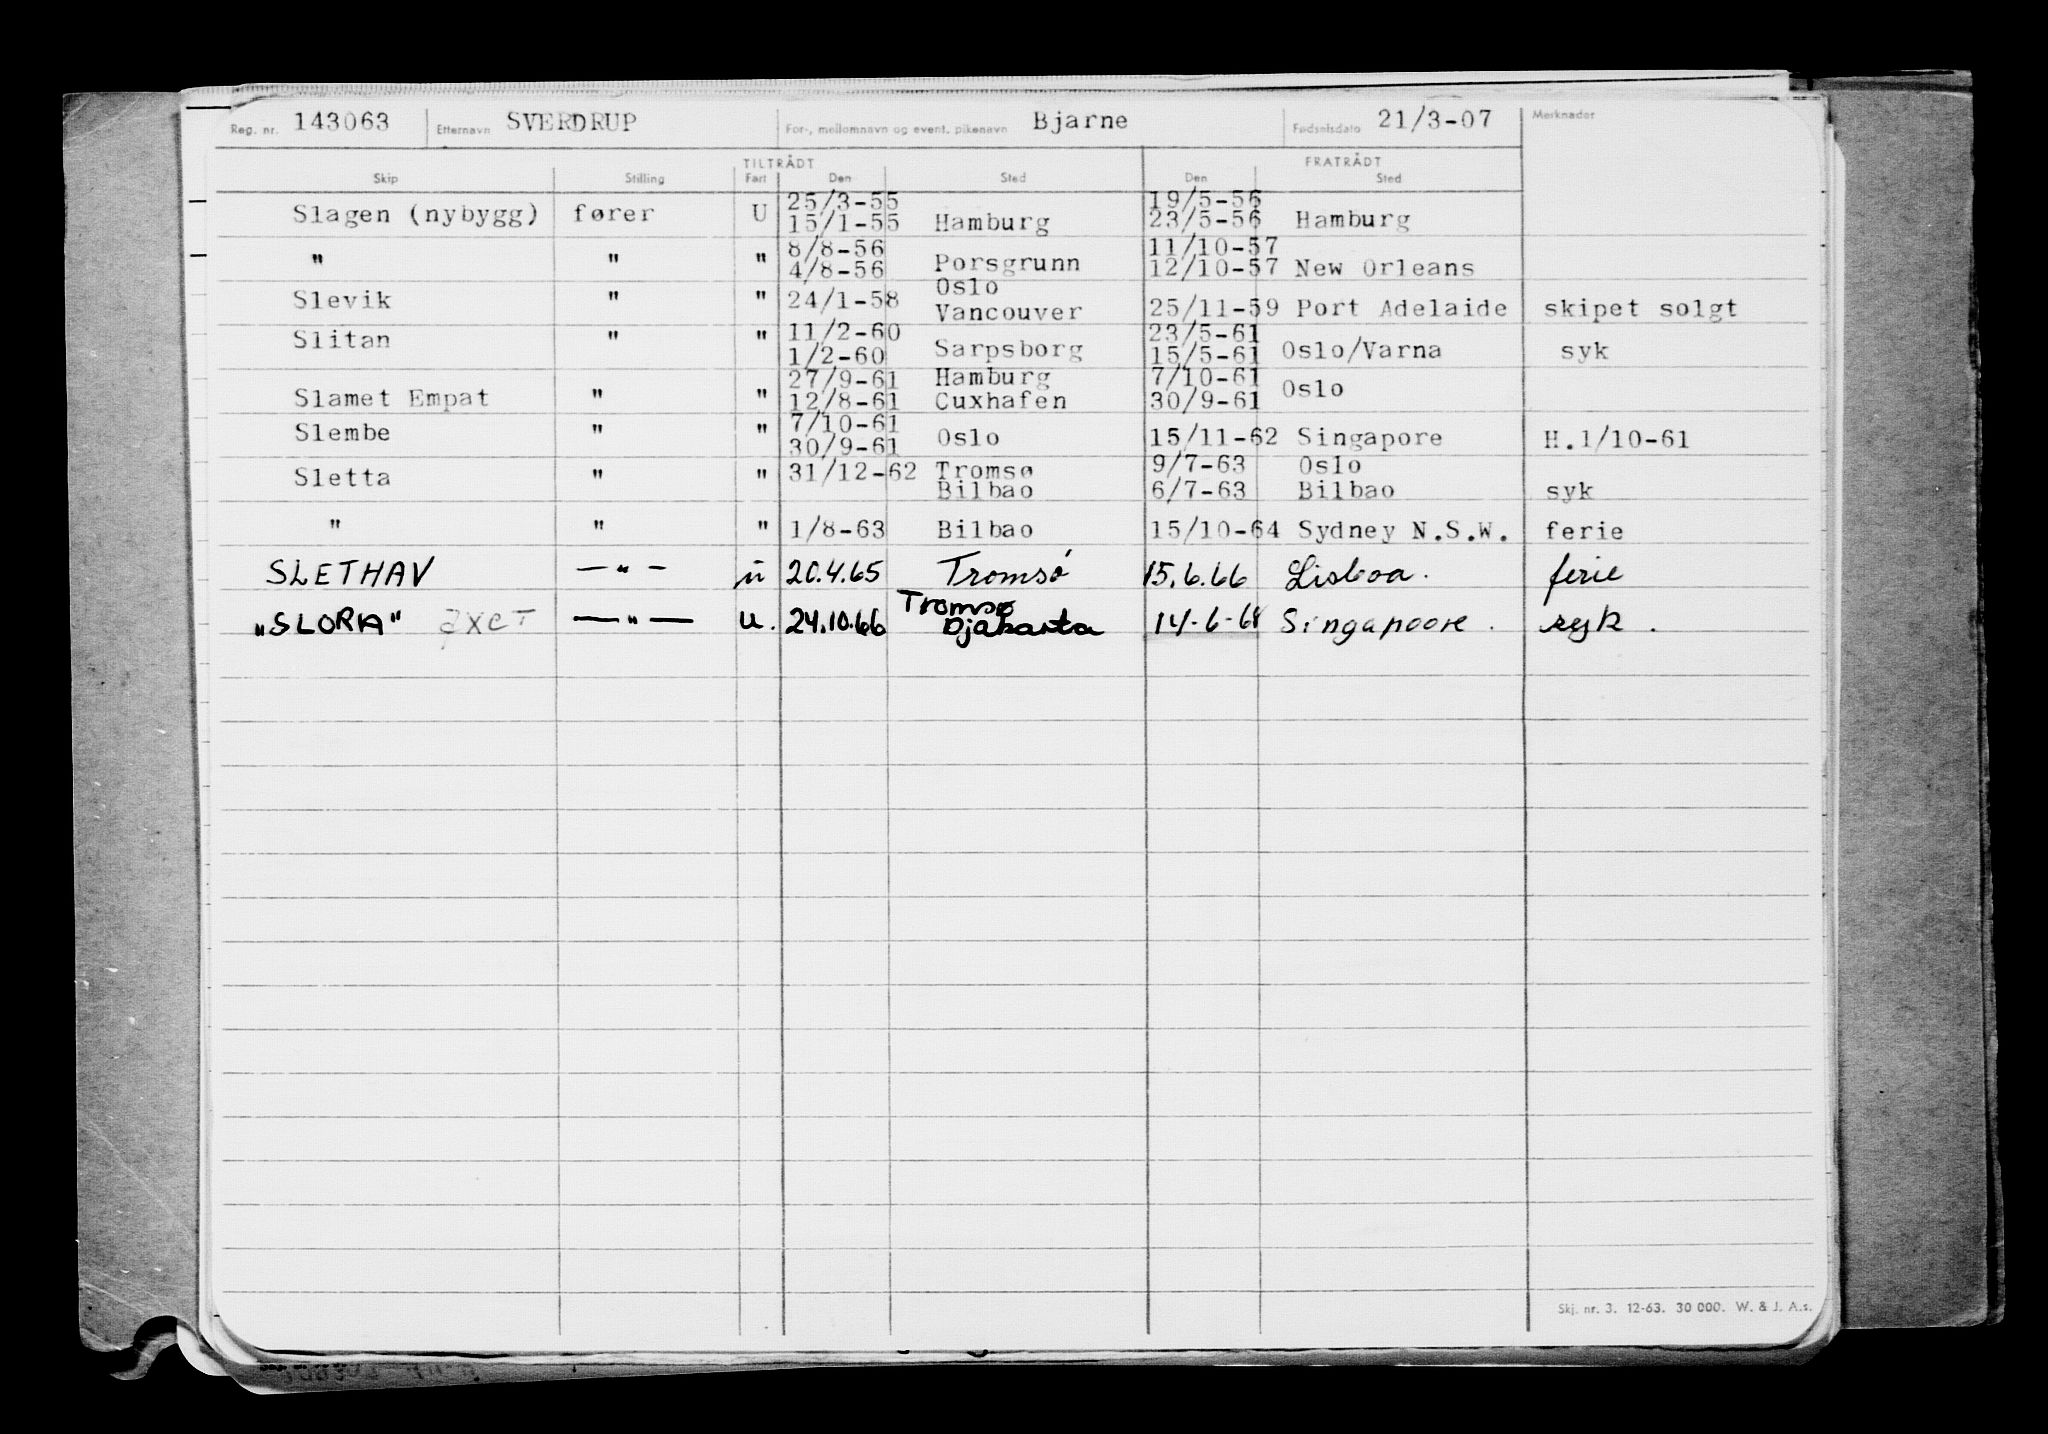 Reg. nr. 143063 Etternavn SVERDRUP For-, mellomnavn og event. pikenavn Bjarne Fødselsdato 21/3-07 Merknader
TILTRÅDT FRATRÅDT
Skip Stilling Fart Den Sted Den Sted
25/3-55 19/5-56
Slagen (nybygg) fører U 15/1-55 Hamburg 23/5-56 Hamburg
8/8-56 11/10-57
" " " 4/8-56 Porsgrunn 12/10-57 New Orleans
Oslo
Slevik " " 24/1-58 Vancouver 25/11-59 Port Adelaide skipet solgt
11/2-60 23/5-61
Slitan " " 1/2-60 Sarpsborg 15/5-61 Oslo/Varna syk
27/9-61 Hamburg 7/10-61
Slamet Empat " " 12/8-61 Cuxhafen 30/9-61 Oslo
7/10-61
Slembe " " 30/9-61 Oslo 15/11-62 Singapore H.1/10-61
Sletta " " 31/12-62 Tromsø 9/7-63 Oslo
Bilbao 6/7-63 Bilbao syk
" " " 1/8-63 Bilbao 15/10-64 Sydney N.S.W. ferie
SLETHAV —"— u 20.4.65 Tromsø 15.6.66 Lisboa. ferie
Tromsø
"SLORA" —"— u. 24.10.66 Djakarta 14-6-68 Singapoore. syk.
Skj. nr. 3. 12-63. 30 000. W. & J. A.s.